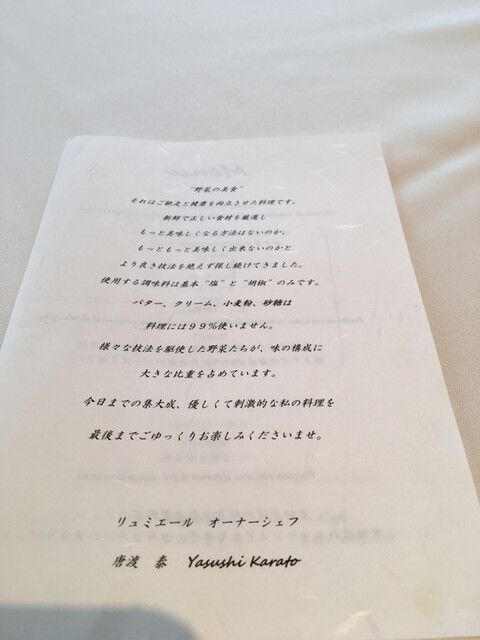 “野菜の美食”
それはご馳走と健康を両立させた料理です。
新鮮で正しい食材を厳選し
もっと美味しくなる方法はないのか、
もっともっと美味しく出来ないのかと
より良き技法を絶えず探し続けてきました。
使用する調味料は基本“塩”と“胡椒”のみです。
バター、クリーム、小麦粉、砂糖は
料理には99%使いません。
様々な技法を駆使した野菜たちが、味の構成に
大きな比重を占めています。
今日までの集大成、優しくて刺激的な私の料理を
最後までごゆっくりお楽しみくださいませ。
リュミエール オーナーシェフ
唐渡 泰 Yasushi Karato